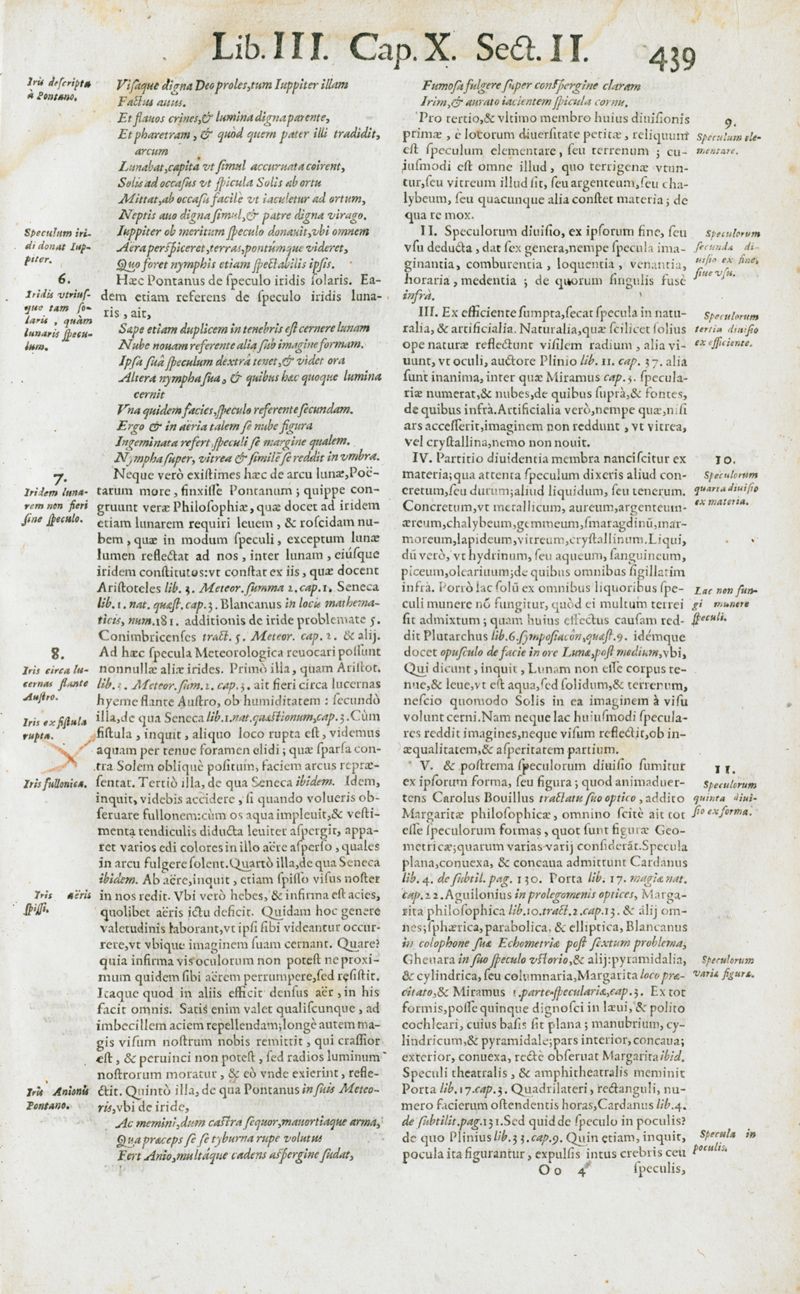 Lib. III. Cap. X. Sect. II. 439
Iris descripta
à Pontano.
Visaque digna Deo proles, tum Iuppiter illam
Factus auus.
Et flauos crines, & lumina digna parente,
Et pharetram, & quod quem pater illi tradidit,
arcum
Lunabat, capita vt simul accuruata coirent,
Solis ad occasus vt spicula Solis ab ortu
Mittat, ab occasu facilè vt iaculetur ad ortum,
Neptis auo digna simul, & patre digna virago.
Speculum iri-
di donat Iup-
piter.
Iuppiter ob meritum speculo donauit, vbi omnem
Aëra perspiceret, terras, pontúmque videret,
Quo foret nymphis etiam spectabilis ipsis.
6.
Iridis vtrius-
que tam so-
laris, quàm
lunaris specu-
lum.
Hæc Pontanus de speculo iridis solaris. Ea-
dem etiam referens de speculo iridis luna-
ris, ait,
Sæpe etiam duplicem in tenebris est cernere lunam
Nube nouam referente alia sub imagine formam.
Ipsa suâ speculum dextrâ tenet, & videt ora
Altera nympha sua, & quibus hæc quoque lumina
cernit
Vna quidem facies, speculo referente secundam.
Ergo & in aëria talem se nube figura
Ingeminata refert, speculi se margine qualem.
Nympha super, vitrea & similè se reddit in vmbra.
7.
Iridem luna-
rem non fieri
sine speculo.
Neque verò existimes hæc de arcu lunæ, Poë-
tarum more, finxisse Pontanum; quippe con-
gruunt veræ Philosophiæ, quæ docet ad iridem
etiam lunarem requiri leuem, & roscidam nu-
bem, quæ in modum speculi, exceptum lunæ
lumen reflectat ad nos, inter lunam, eiúsque
iridem constitutos: vt constat ex iis, quæ docent
Aristoteles lib. 3. Meteor. summa 2. cap. 1. Seneca
lib. 1. nat. quæst. cap. 3. Blancanus in locis mathema-
ticis, num. 181. additionis de iride problemate 5.
Conimbricenses tract. 5. Meteor. cap. 2. & alij.
8.
Iris circa lu-
cernas flante
Austro.
Ad hæc specula Meteorologica reuocari possunt
nonnullæ aliæ irides. Primò illa, quam Aristot.
lib. 3. Meteor. sum. 2. cap. 3. ait fieri circa lucernas
hyeme flante Austro, ob humiditatem: secundò
Iris ex fistula
rupta.
illa, de qua Seneca lib. 1. nat. quæstionum, cap. 3. Cùm
fistula, inquit, aliquo loco rupta est, videmus
aquam per tenue foramen elidi; quæ sparsa con-
tra Solem obliquè positum, faciem arcus repræ-
Iris fullonica.
sentat. Tertiò illa, de qua Seneca ibidem. Idem,
inquit, videbis accidere, si quando volueris ob-
seruare fullonem: cùm os aqua impleuit, & vesti-
menta tendiculis diducta leuiter aspergit, appa-
ret varios edi colores in illo aëre asperso, quales
in arcu fulgere solent. Quartò illa, de qua Seneca
ibidem. Ab aëre, inquit, etiam spisso visus noster
Iris aëris
spissi.
in nos redit. Vbi verò hebes, & infirma est acies,
quolibet aëris ictu deficit. Quidam hoc genere
valetudinis laborant, vt ipsi sibi videantur occur-
rere, vt vbique imaginem suam cernant. Quare?
quia infirma vis oculorum non potest ne proxi-
mum quidem sibi aërem perrumpere, sed resistit.
Itaque quod in aliis efficit densus aër, in his
facit omnis. Satis enim valet qualiscunque, ad
imbecillem aciem repellendam; longè autem ma-
gis visum nostrum nobis remittit, qui crassior
est, & peruinci non potest, sed radios luminum
nostrorum moratur, & eò vnde exierint, refle-
Iris Anionis
Pontano.
ctit. Quintò illa, de qua Pontanus in suis Meteo-
ris, vbi de iride,
Ac memini, dum castra sequor, mauortiaque arma,
Qua præceps se se tyburna rupe volutus
Fert Anio, multáque cadens aspergine sudat,
Fumosa fulgere super conspergine claram
Irim, & aurato iacientem spicula cornu.
9.
Speculum ele-
mentare.
Pro tertio, & vltimo membro huius diuisionis
primæ, è locorum diuersitate petitæ, reliquum
est speculum elementare, seu terrenum; cu-
iusmodi est omne illud, quo terrigenæ vtun-
tur, seu vitreum illud sit, seu argenteum, seu cha-
lybeum, seu quacunque alia constet materia; de
qua re mox.
Speculorum
secunda di-
uisio ex fine,
siue vsu.
II. Speculorum diuisio, ex ipsorum fine, seu
vsu deducta, dat sex genera, nempe specula ima-
ginantia, comburentia, loquentia, venantia,
horaria, medentia; de quorum singulis fusè
infrà.
Speculorum
tertia diuisio
ex efficiente.
III. Ex efficiente sumpta, secat specula in natu-
ralia, & artificialia. Naturalia, quæ scilicet solius
ope naturæ reflectunt visilem radium, alia vi-
uunt, vt oculi, auctore Plinio lib. 11. cap. 37. alia
sunt inanima, inter quæ Miramus cap. 3. specula-
riæ numerat, & nubes, de quibus suprà, & fontes,
de quibus infrà. Artificialia verò, nempe quæ, nisi
ars accesserit, imaginem non reddunt, vt vitrea,
vel crystallina, nemo non nouit.
10.
Speculorum
quarta diuisio
ex materia.
IV. Partitio diuidentia membra nanciscitur ex
materia; qua attenta speculum dixeris aliud con-
cretum, seu durum; aliud liquidum, seu tenerum.
Concretum, vt metallicum, aureum, argenteum-
æreum, chalybeum, gemmeum, smaragdinū, mar-
moreum, lapideum, vitreum, crystallinum. Liqui,
dū verò, vt hydrinum, seu aqueum, sanguineum,
piceum, olearium; de quibus omnibus sigillatim
Lac non fun-
gi munere
speculi.
infrà. Porrò lac solū ex omnibus liquoribus spe-
culi munere nō fungitur, quòd ei multum terrei
sit admixtum; quam huius effectus causam red-
dit Plutarchus lib. 6. symposiacōn, quæst. 9. idémque
docet opusculo de facie in ore Lunæ, post medium, vbi,
Qui dicunt, inquit, Lunam non esse corpus te-
nue, & leue, vt est aqua, sed solidum, & terrenum,
nescio quomodo Solis in ea imaginem à visu
volunt cerni. Nam neque lac huiusmodi specula-
res reddit imagines, neque visum reflectit, ob in-
æqualitatem, & asperitatem partium.
11.
Speculorum
quinta diui-
sio ex forma.
V. & postrema speculorum diuisio sumitur
ex ipsorum forma, seu figura; quod animaduer-
tens Carolus Bouillus tractatu suo optico, addito
Margaritæ philosophicæ, omnino scitè ait tot
esse speculorum formas, quot sunt figuræ Geo-
metricæ; quarum varias varij considerāt. Specula
plana, conuexa, & concaua admittunt Cardanus
lib. 4. de subtil. pag. 130. Porta lib. 17. magiæ nat.
cap. 22. Aguilonius in prolegomenis optices, Marga-
rita philosophica lib. 10. tract. 2. cap. 13. & alij om-
nes; sphærica, parabolica, & elliptica, Blancanus
in colophone suæ Echometriæ post sextum problema,
Speculorum
varia figura.
Gheuara in suo speculo vstorio, & alij: pyramidalia,
& cylindrica, seu columnaria, Margarita loco præ-
citato, & Miramus 1. parte speculariæ, cap. 3. Ex tot
formis, posse quinque dignosci in læui, & polito
cochleari, cuius basis sit plana; manubrium, cy-
lindricum, & pyramidale; pars interior, concaua;
exterior, conuexa, rectè obseruat Margarita ibid.
Speculi theatralis, & amphitheatralis meminit
Porta lib. 17. cap. 3. Quadrilateri, rectanguli, nu-
mero facierum ostendentis horas, Cardanus lib. 4.
de subtilit. pag. 131. Sed quid de speculo in poculis?
Specula in
poculis.
de quo Plinius lib. 33. cap. 9. Quin etiam, inquit,
pocula ita figurantur, expulsis intus crebris ceu
Oo 4 speculis,